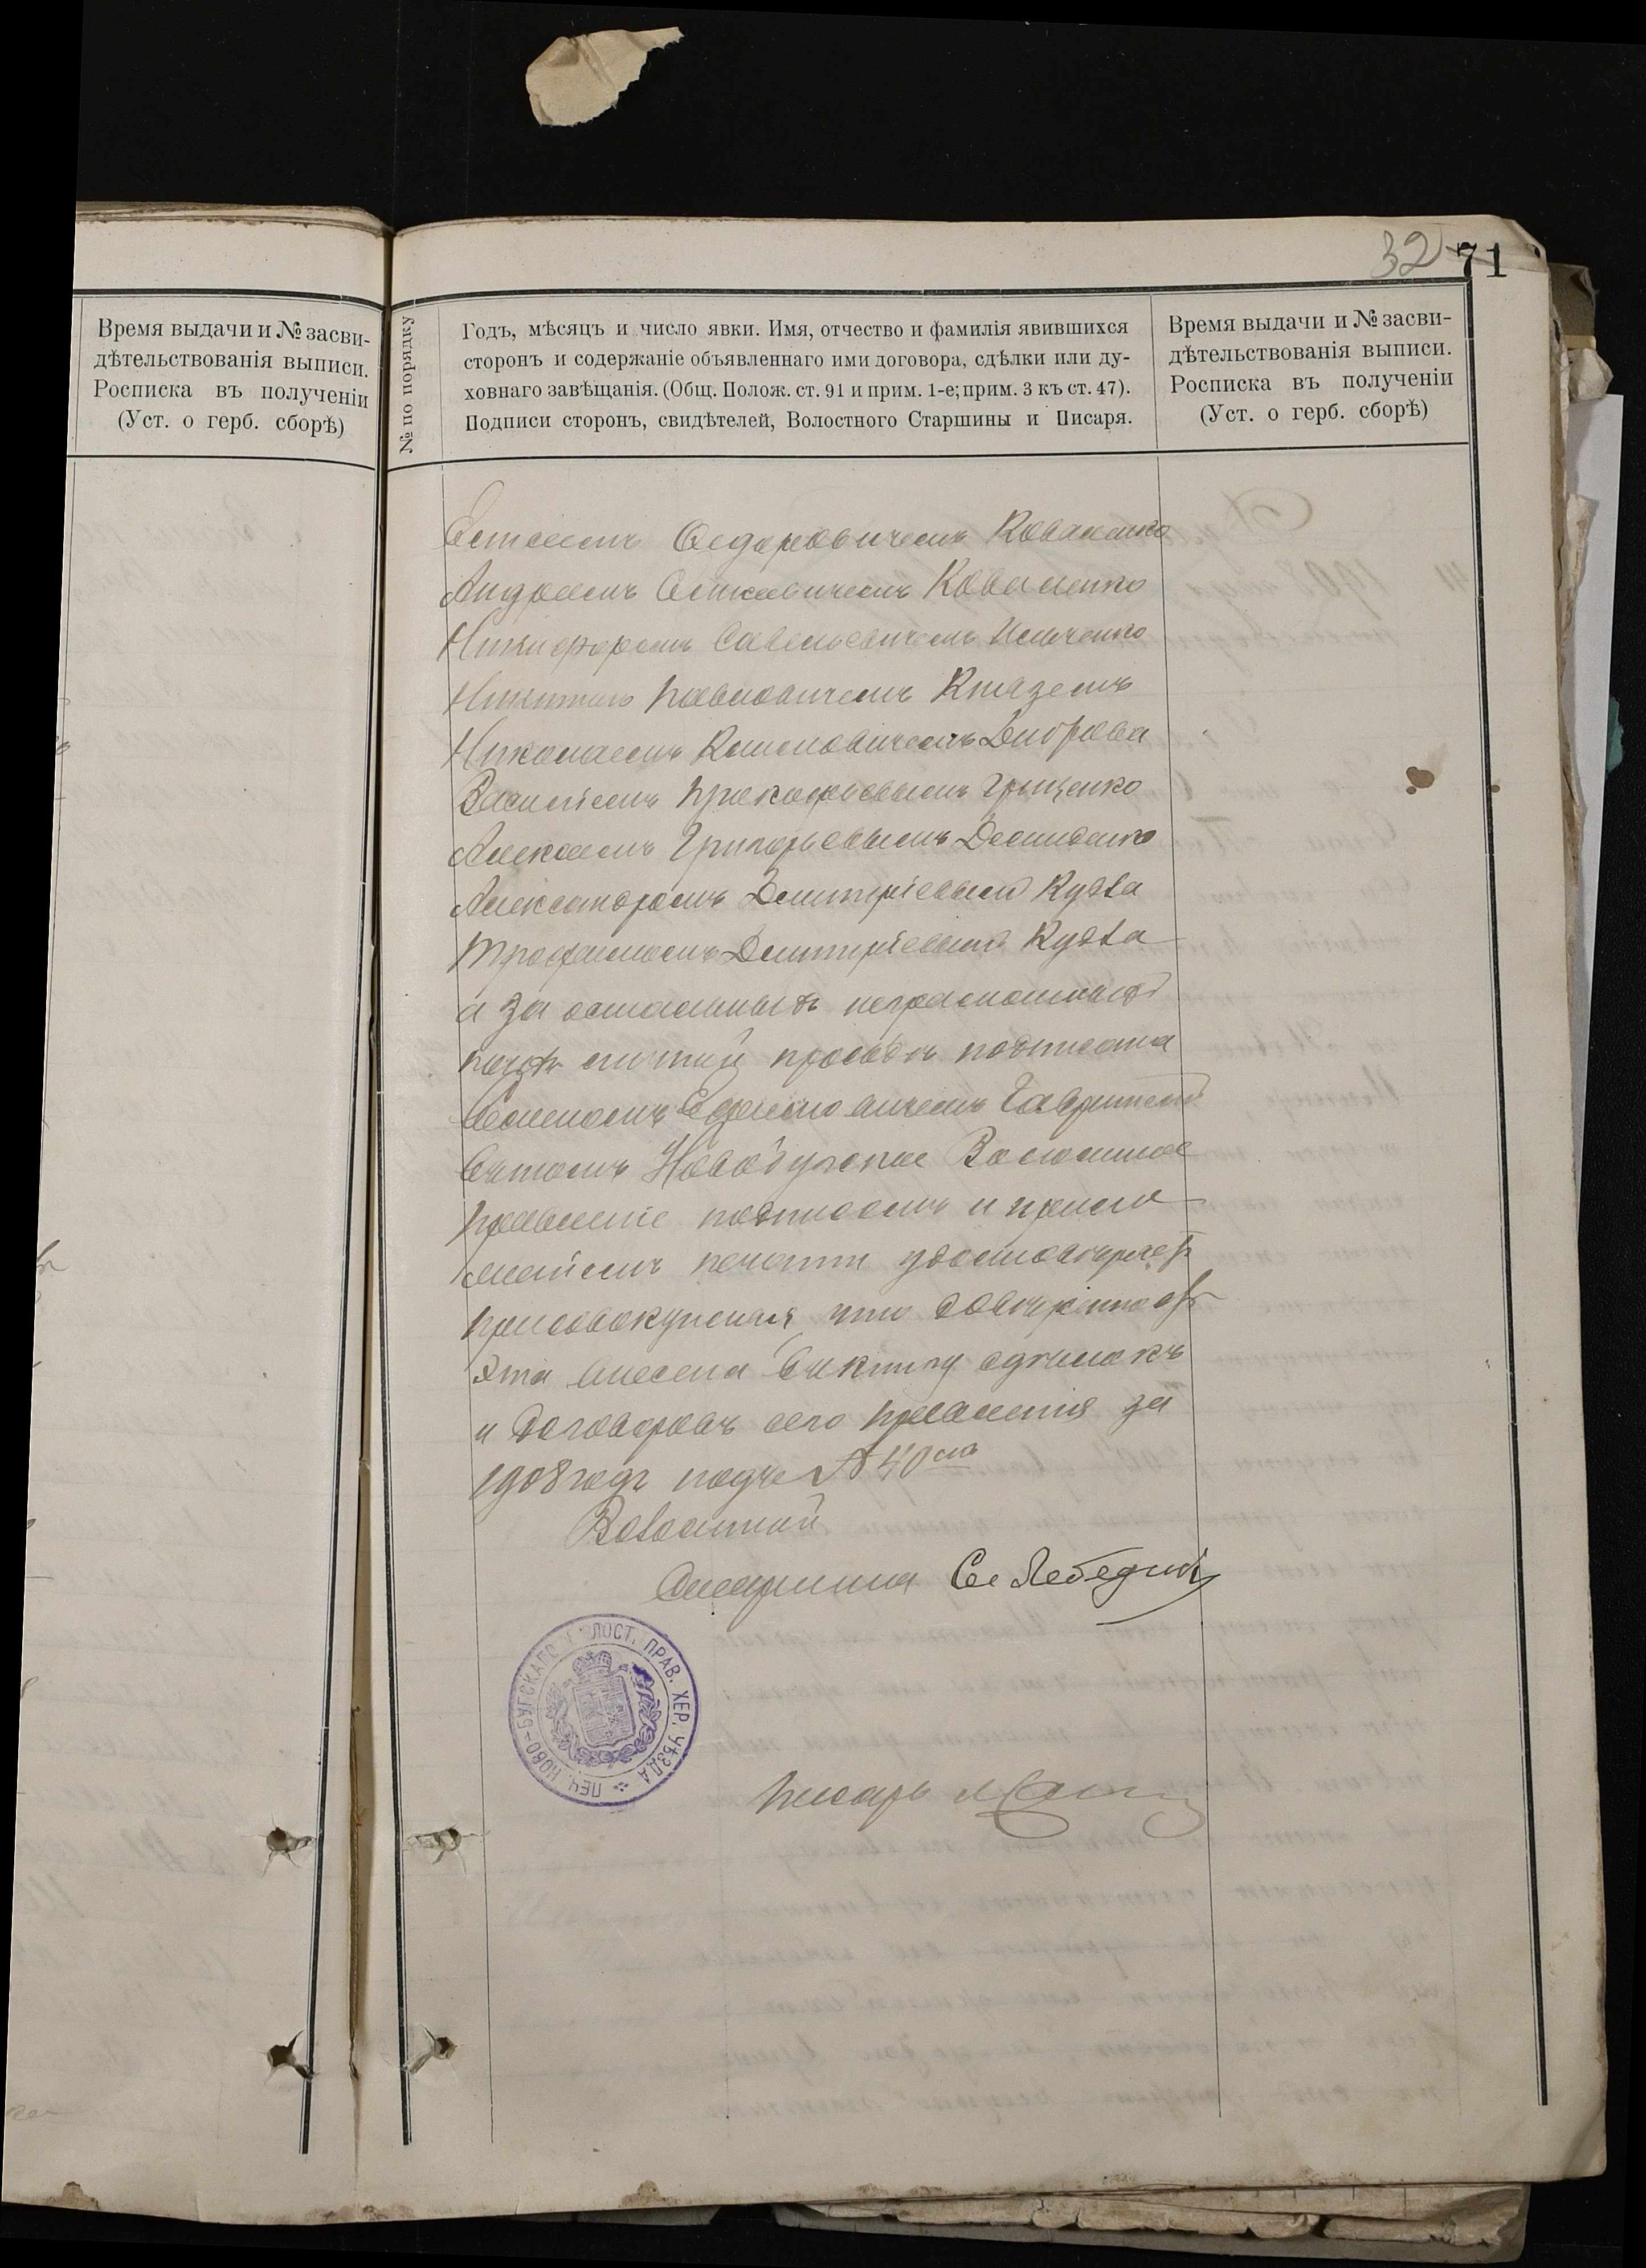 32 71
Время выдачи и № засви-
дѣтельствованія выписи.
Росписка въ полученіи
(Уст. о герб. сборѣ)
№ по порядку
Годъ, мѣсяцъ и число явки. Имя, отчество и фамилія явившихся
сторонъ и содержаніе объявленнаго ими договора, сдѣлки или ду-
ховнаго завѣщанія. (Общ. Полож. ст. 91 и прим. 1-е; прим. 3 къ ст. 47).
Подписи сторонъ, свидѣтелей, Волостного Старшины и Писаря.
Время выдачи и № засви-
дѣтельствованія выписи.
Росписка въ полученіи
(Уст. о герб. сборѣ)
Коваленко
Коваленко
Никифоромъ Савельевичемъ Ильченко
Никитою Павловичемъ Княземъ
Николаемъ Диброва
Василіемъ Прокофьевымъ Грищенко
Алексѣемъ Григорьевымъ Демиденко
Александромъ Дмитріевымъ Кудла
Трофимомъ Дмитріевымъ Кудла
а за остальныхъ неграмотныхъ
по ихъ личной прозьбѣ подписана
Семеномъ Ефимовичемъ
въ томъ Новобугское Волостное
Правленіе подписомъ и прило
женіемъ печати удостовѣряетъ
присовокупляя что довѣренность
эта внесена въ книгу сдѣлокъ
и договоровъ сего Правленія за
1908 годъ подъ № 40мъ
Волостной
Старшина Се Лебедий
ПЕЧ. НОВО-БУГСКАГО ВОЛОСТ. ПРАВ. ХЕР. УѢЗДА
Писарь